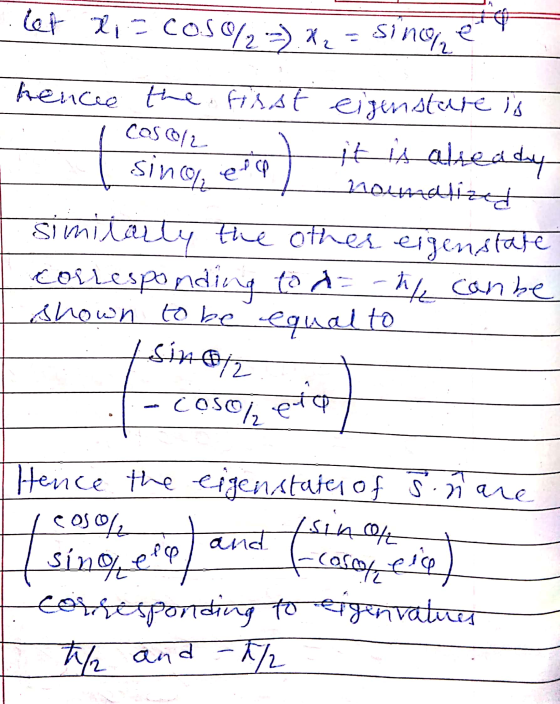 let x₁ = cosθ/2 ⇒ x₂ = sinθ/2 e^{iφ}
hence the first eigenstate is
( cosθ/2
sinθ/2 e^{iφ} ) it is already normalized
similarly the other eigenstate
corresponding to λ = -ħ/2 can be
shown to be equal to
( sinθ/2
- cosθ/2 e^{iφ} )
Hence the eigenstates of s⃗·n⃗ are
( cosθ/2
sinθ/2 e^{iφ} ) and ( sinθ/2
-cosθ/2 e^{iφ} )
corresponding to eigenvalues
ħ/2 and -ħ/2